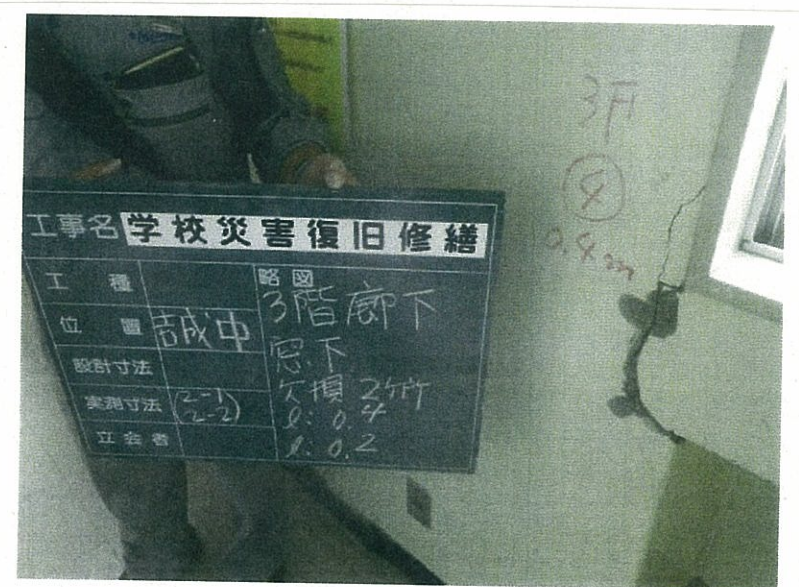 工事名 学校災害復旧修繕
工種
位置 誠中
設計寸法
実測寸法 (2-1 2-2)
立会者
略図
3階廊下
窓下
欠損 2ケ所
l: 0.4
l: 0.2
3F
④
0.4m